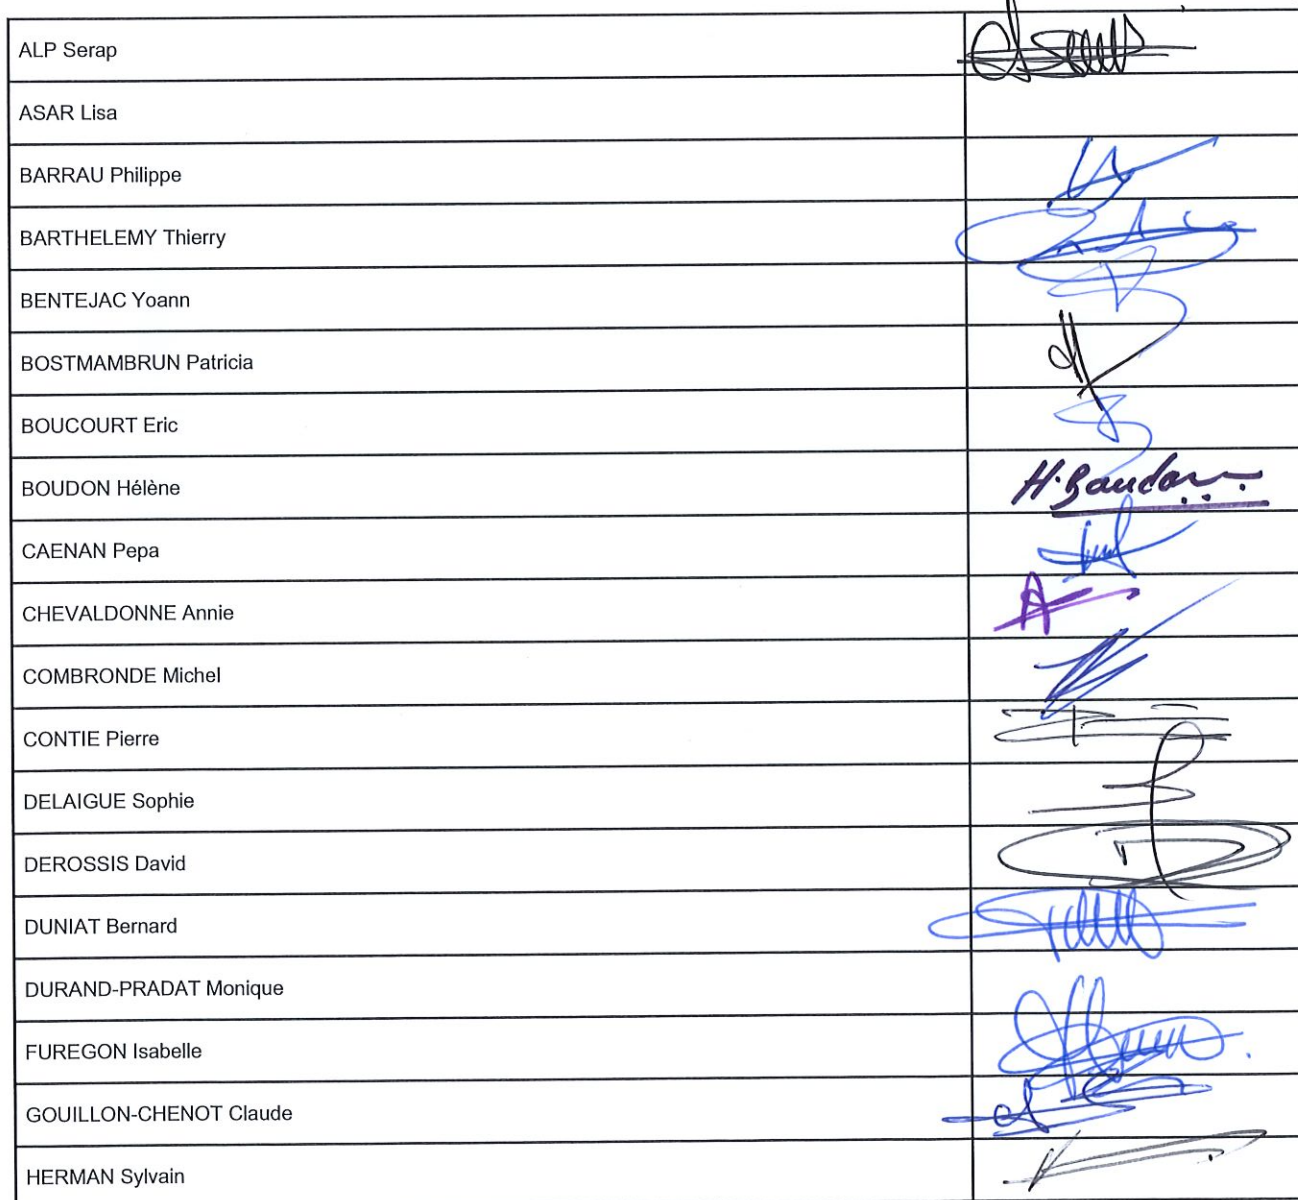 ALP Serap
ASAR Lisa
BARRAU Philippe
BARTHELEMY Thierry
BENTEJAC Yoann
BOSTMAMBRUN Patricia
BOUCOURT Eric
BOUDON Hélène
H. Boudon
CAENAN Pepa
CHEVALDONNE Annie
COMBRONDE Michel
CONTIE Pierre
DELAIGUE Sophie
DEROSSIS David
DUNIAT Bernard
DURAND-PRADAT Monique
FUREGON Isabelle
GOUILLON-CHENOT Claude
HERMAN Sylvain